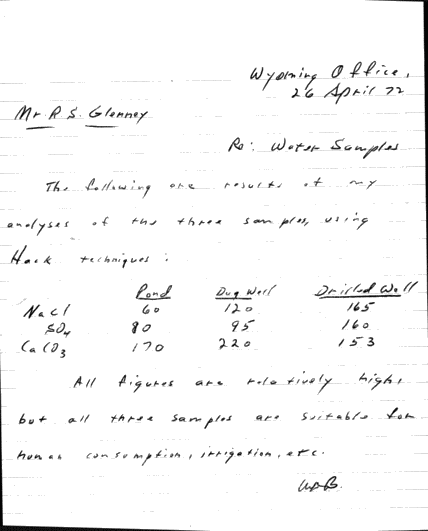 Wyoming Office,
26 April 72
Mr. R. S. Glenney
Re: Water Samples
The following are results of my
analyses of the three samples, using
Hack techniques:
Pond Dug Well Drilled Well
NaCl 60 120 165
SO4 80 95 160
CaCO3 170 220 153
All figures are relatively high,
but all three samples are suitable for
human consumption, irrigation, etc.